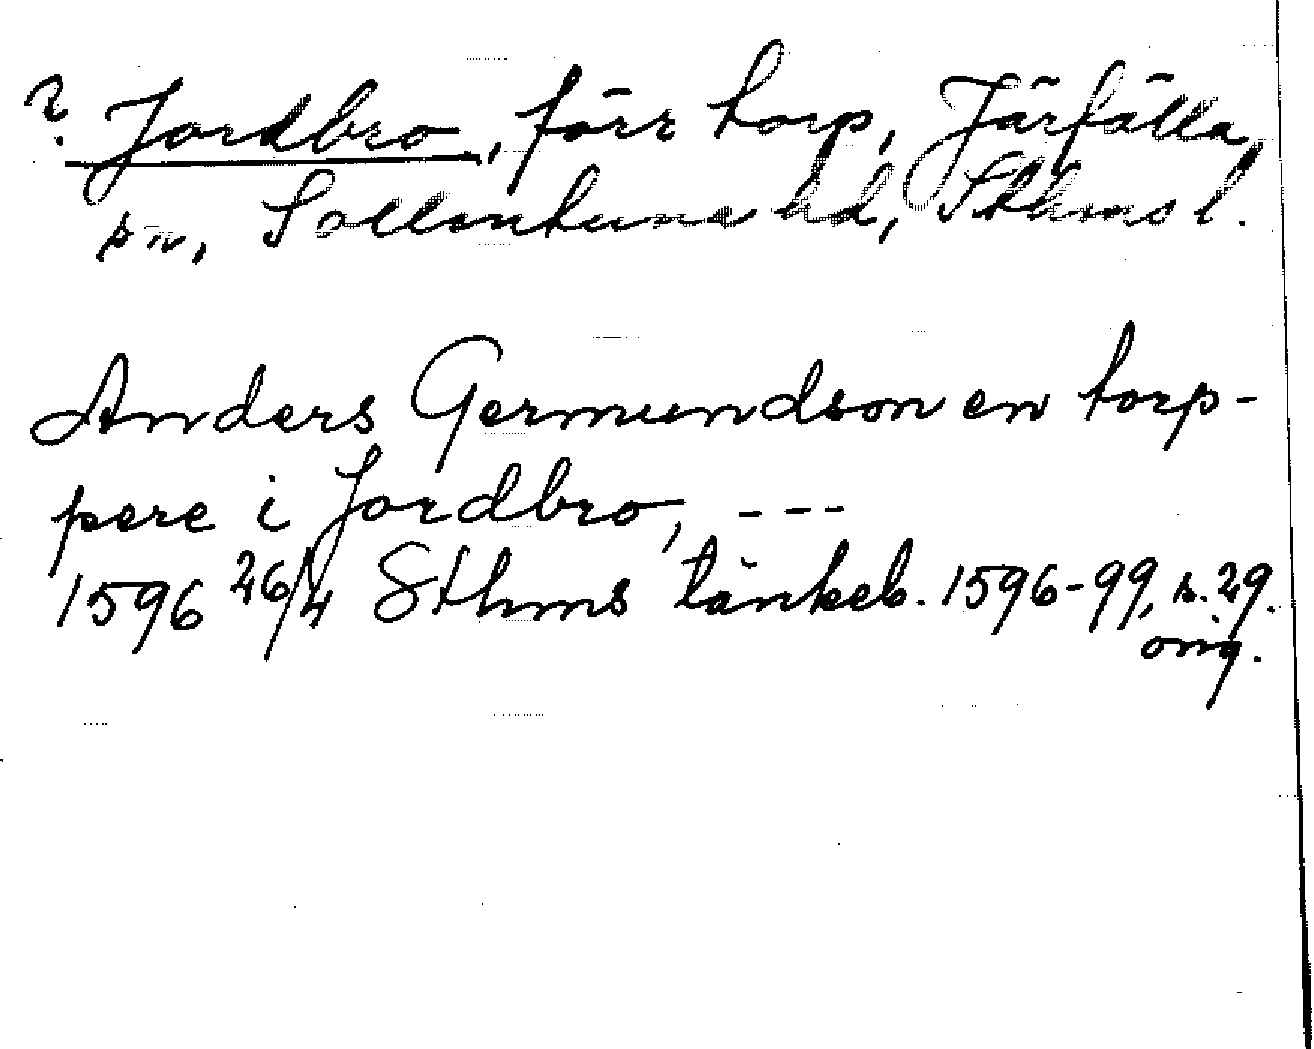 ? Jordbro, förr torp, Järfälla
sn, Sollentuna hd, Sthms l.
Anders Germundson en torp-
pere i Jordbro, ---
1596 26/4 Sthms tänkeb. 1596-99, s. 29.
orig.